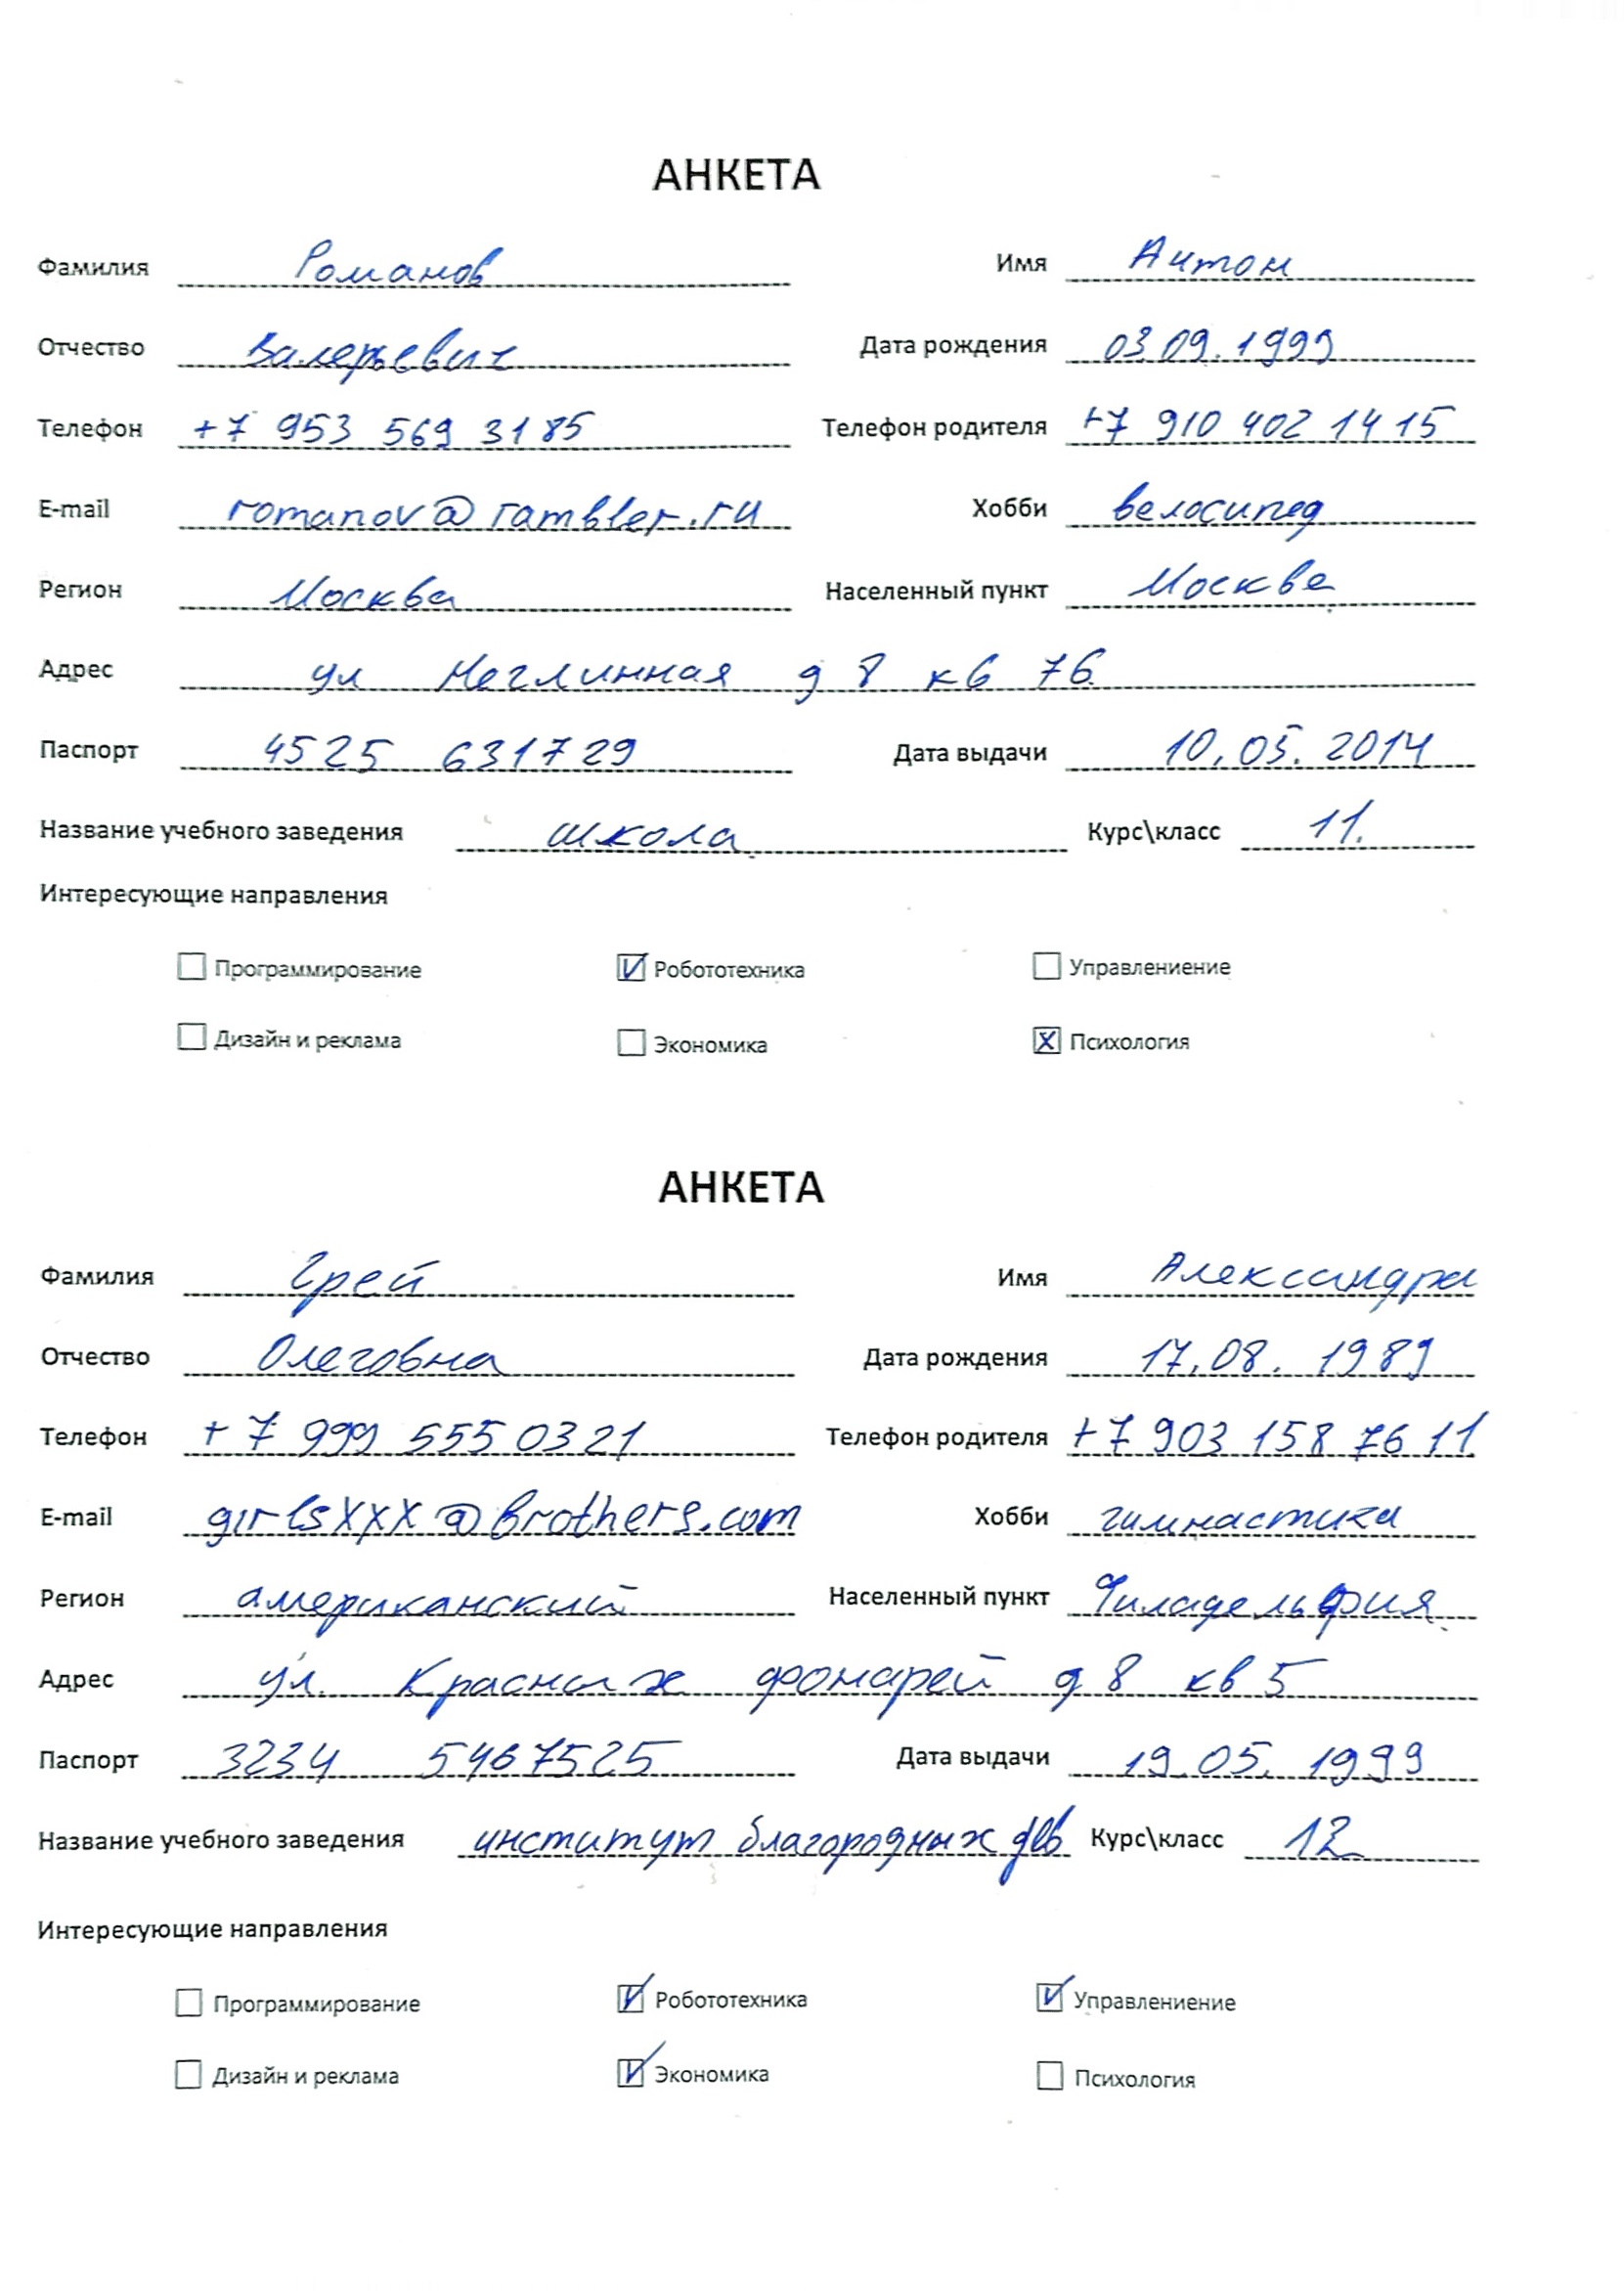 АНКЕТА
Фамилия Романов Имя Антон
Отчество Валерьевич Дата рождения 03.09.1999
Телефон +7 953 569 3185 Телефон родителя +7 910 402 14 15
E-mail romanov@rambler.ru Хобби велосипед
Регион Москва Населенный пункт Москва
Адрес ул Неглинная д 8 кв 76
Паспорт 4525 631729 Дата выдачи 10.05.2014
Название учебного заведения школа Курс\класс 11.
Интересующие направления
Программирование Робототехника Управлениение
Дизайн и реклама Экономика Психология
АНКЕТА
Фамилия Грей Имя Александра
Отчество Олеговна Дата рождения 17.08.1989
Телефон +7 999 555 0321 Телефон родителя +7 903 158 76 11
E-mail girlsXXX@brothers.com Хобби гимнастика
Регион американский Населенный пункт Филадельфия
Адрес ул. Красных фонарей д 8 кв 5
Паспорт 3234 5467525 Дата выдачи 19.05.1999
Название учебного заведения институт благородных дев Курс\класс 12
Интересующие направления
Программирование Робототехника Управлениение
Дизайн и реклама Экономика Психология